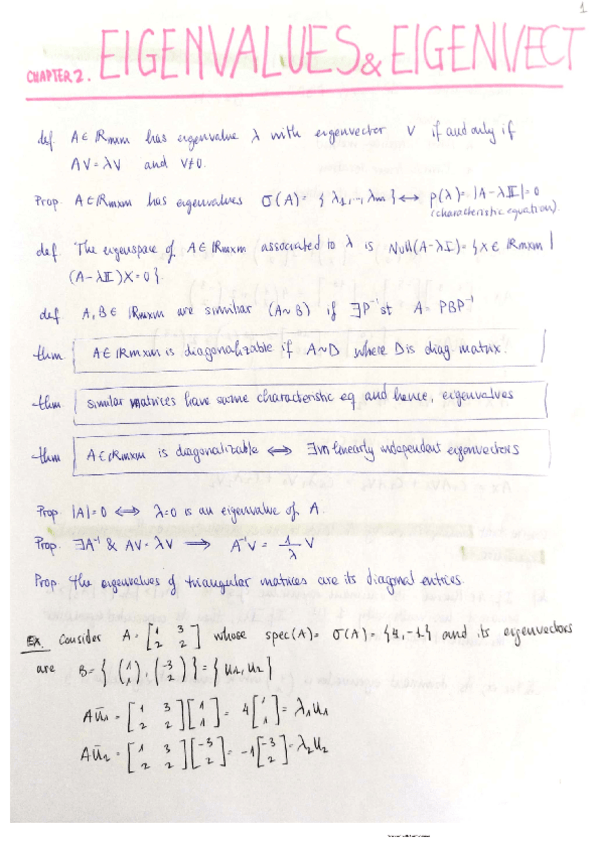 1
CHAPTER 2. EIGENVALUES & EIGENVECT
def A∈ℝmxm has eigenvalue λ with eigenvector V if and only if
AV=λV and V≠0.
Prop A∈ℝmxm has eigenvalues σ(A)= {λ1,..., λm} ⟷ p(λ)=|A-λ𝕀|=0
(characteristic equation).
def The eigenspace of A∈ℝmxm associated to λ is Null(A-λI)={X∈ℝmxm |
(A-λ𝕀)X=0}.
def A,B∈ ℝmxm are similar (A~B) if ∃P⁻¹ st A= PBP⁻¹
thm A∈ℝmxm is diagonalizable if A~D where D is diag. matrix.
thm similar matrices have same characteristic eq and hence, eigenvalues
thm A∈ℝmxm is diagonalizable ⟺ ∃m linearly independent eigenvectors
Prop |A|=0 ⟺ λ=0 is an eigenvalue of A.
Prop. ∃A⁻¹ & AV=λV ⟹ A⁻¹V = 1/λ V
Prop The eigenvalues of triangular matrices are its diagonal entries.
EX. Consider A= [1 3; 2 2] whose spec(A)= σ(A)= {4,-1} and its eigenvectors
are B={ (1 1), (-3 2) }={u1,u2}
Au̅1 = [1 3; 2 2][1; 1] = 4[1; 1] = λ1u1
Au̅2 = [1 3; 2 2][-3; 2] = -1[-3; 2] = λ2u2